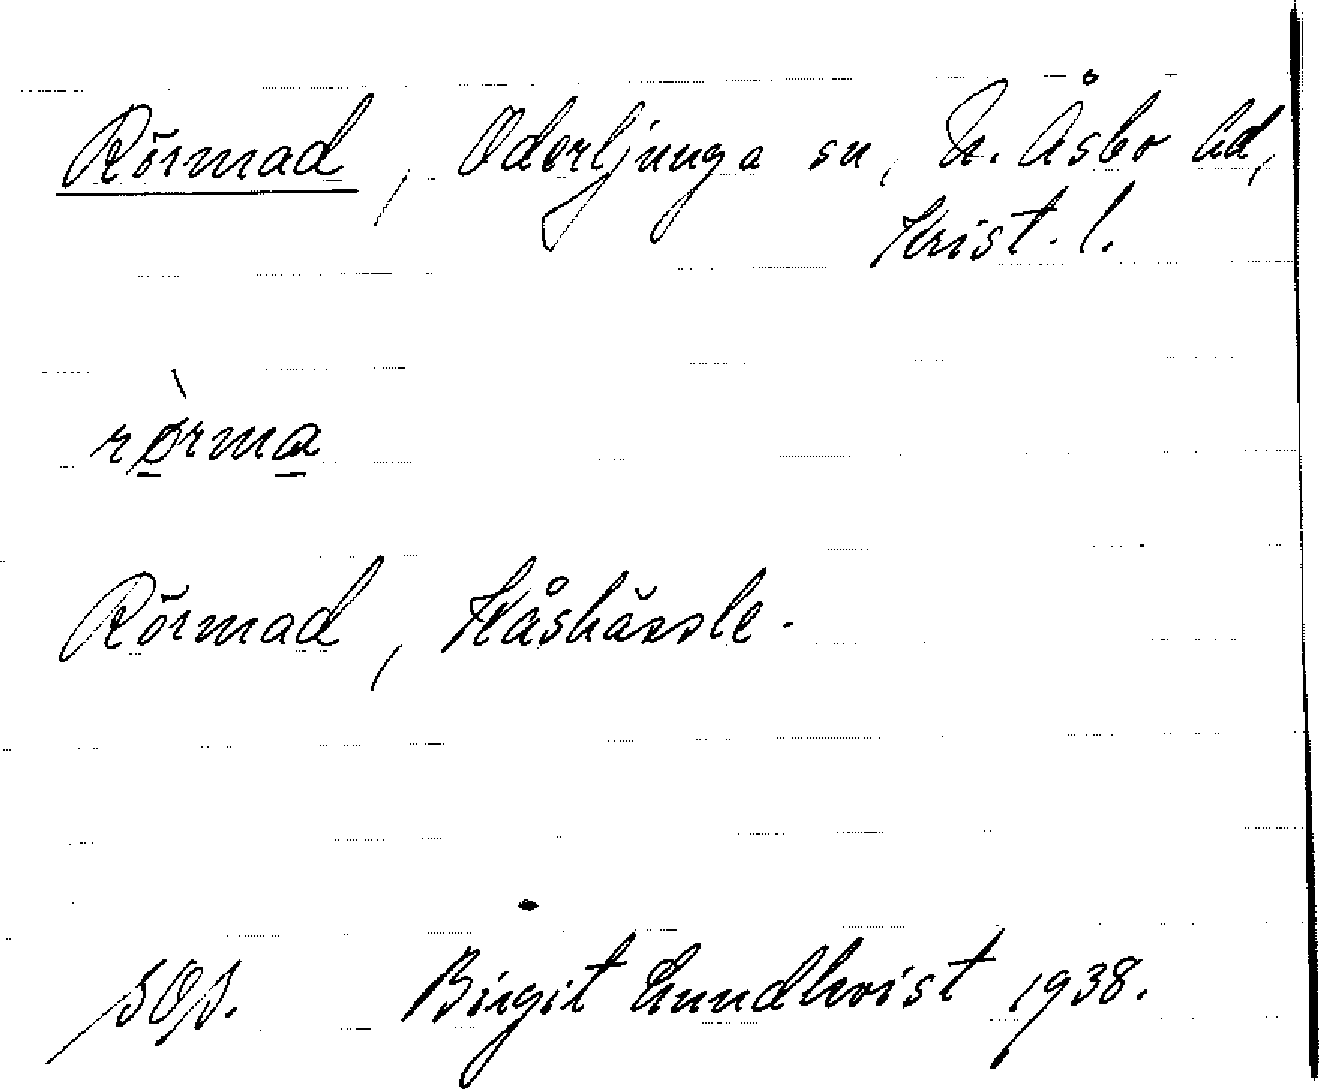 Rörmad, Oderljunga sn, N. Åsbo hd,
Krist. l.
rø̀rma
Rörmad, Håshässle.
Birgit Lundkvist 1938.